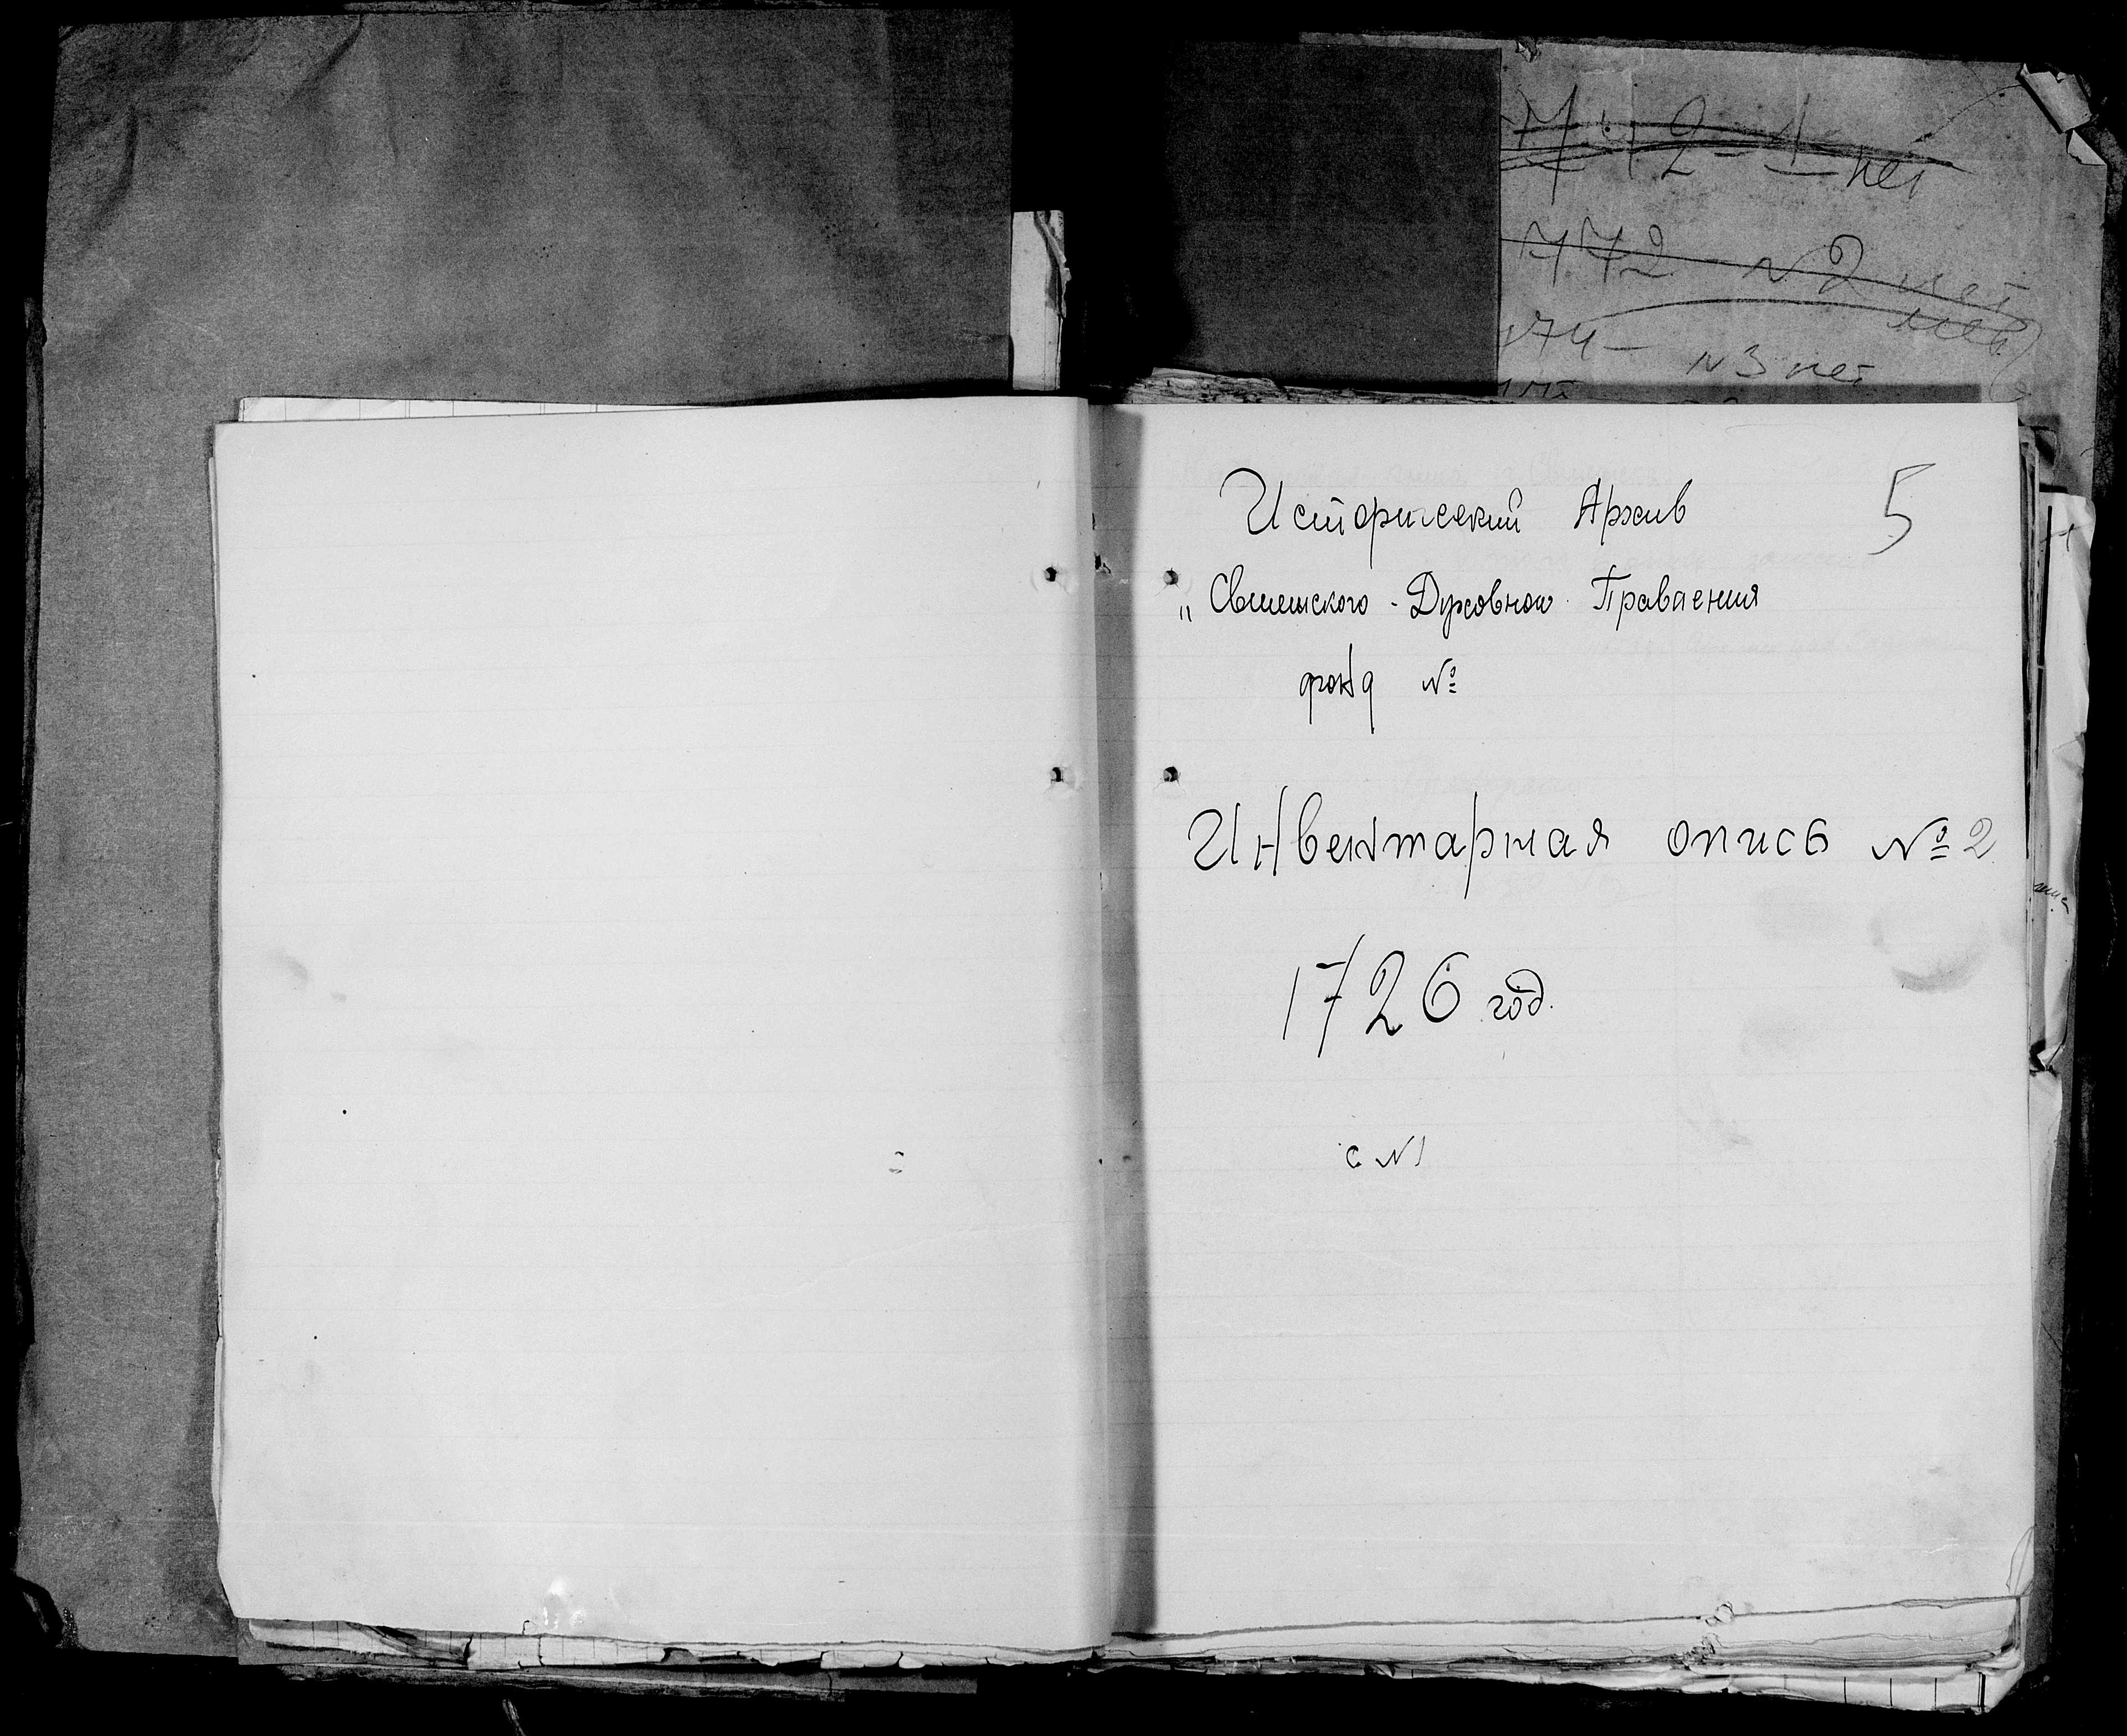 742-1 нет
772 №2 нет
174- нет
№3 нет
5
Исторический Архив
„ Свияжского - Духовного Правления
фонд №
Инвентарная опись № 2
1726 год.
с №1